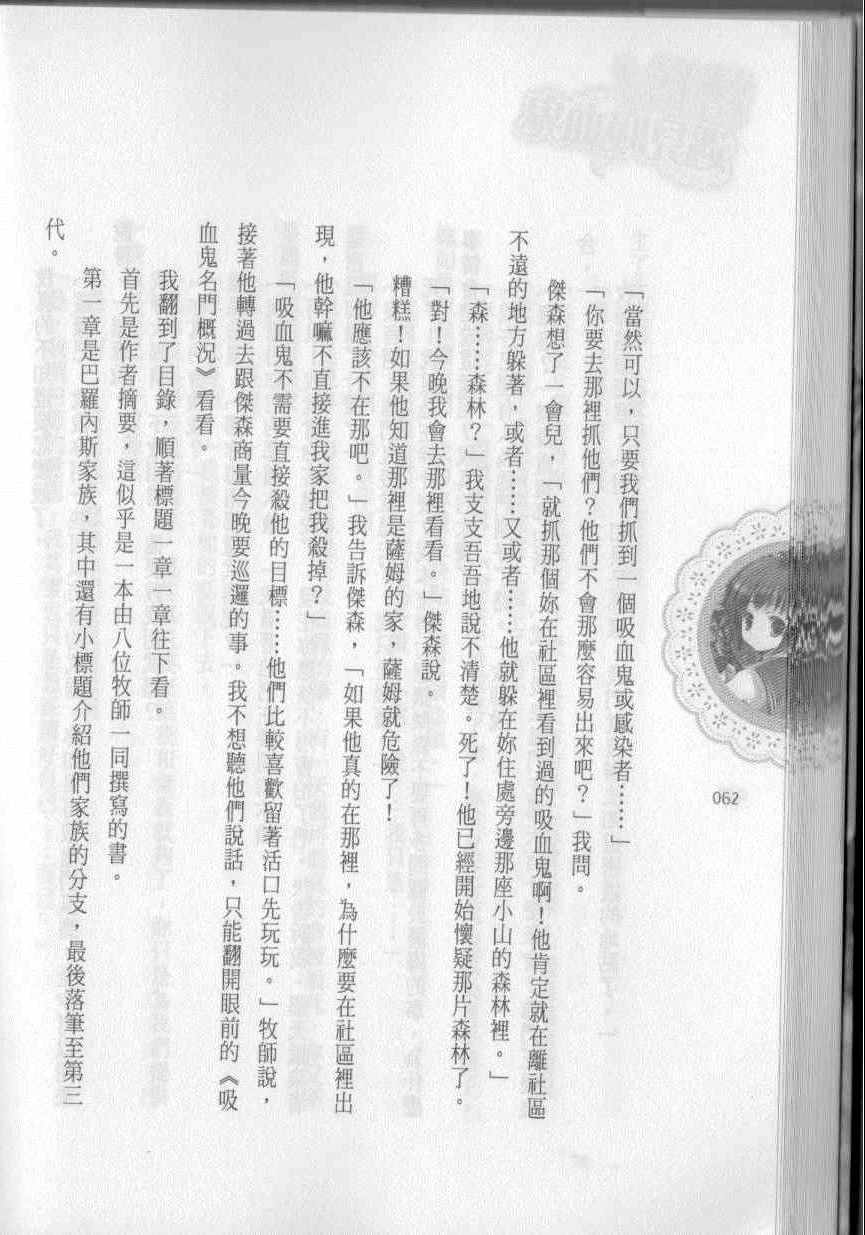 「當然可以，只要我們抓到一個吸血鬼或感染者……」
「你要去那裡抓他們？他們不會那麼容易出來吧？」我問。
傑森想了一會兒，「就抓那個妳在社區裡看到過的吸血鬼啊！他肯定就在離社區
不遠的地方躲著，或者……又或者……他就躲在妳住處旁邊那座小山的森林裡。」
「森……森林？」我支支吾吾地說不清楚。死了！他已經開始懷疑那片森林了。
「對！今晚我會去那裡看看。」傑森說。
糟糕！如果他知道那裡是薩姆的家，薩姆就危險了！
「他應該不在那吧。」我告訴傑森，「如果他真的在那裡，為什麼要在社區裡出
現，他幹嘛不直接進我家把我殺掉？」
「吸血鬼不需要直接殺他的目標……他們比較喜歡留著活口先玩玩。」牧師說，
接著他轉過去跟傑森商量今晚要巡邏的事。我不想聽他們說話，只能翻開眼前的《吸
血鬼名門概況》看看。
我翻到了目錄，順著標題一章一章往下看。
首先是作者摘要，這似乎是一本由八位牧師一同撰寫的書。
第一章是巴羅內斯家族，其中還有小標題介紹他們家族的分支，最後落筆至第三
代。
062